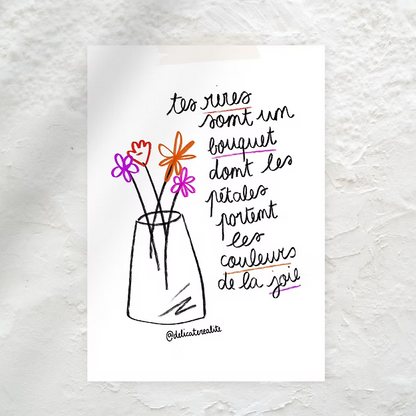 tes rires
sont un
bouquet
dont les
pétales
portent
les
couleurs
de la joie
@delicaterealite